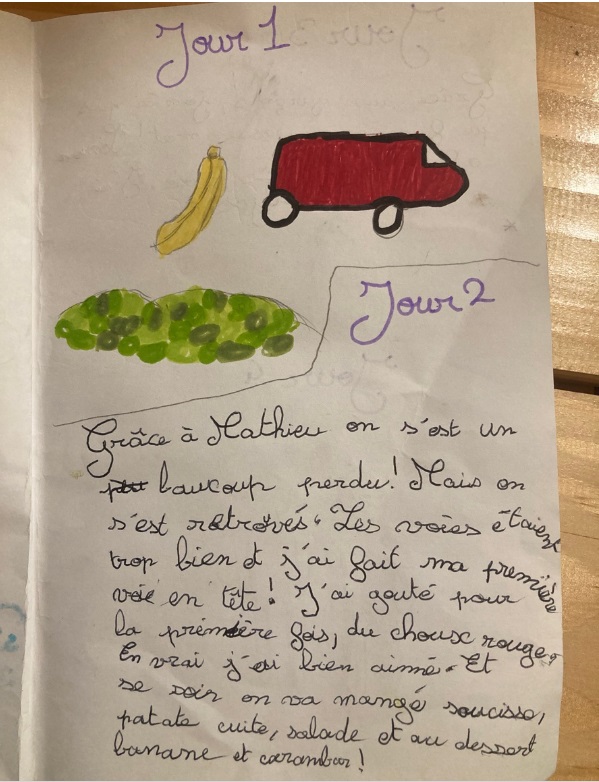 Jour 1
Jour 2
Grâce à Mathieu on s'est un
baucoup perdu! Mais on
s'est retrovés. Les voies étaient
trop bien et j'ai fait ma première
voie en tête! J'ai gouté pour
la première fois, du choux rouge.
En vrai j'ai bien aimé. Et
se soir on va mangé soucisse,
patate cuite, salade et au dessert
banane et carambar!